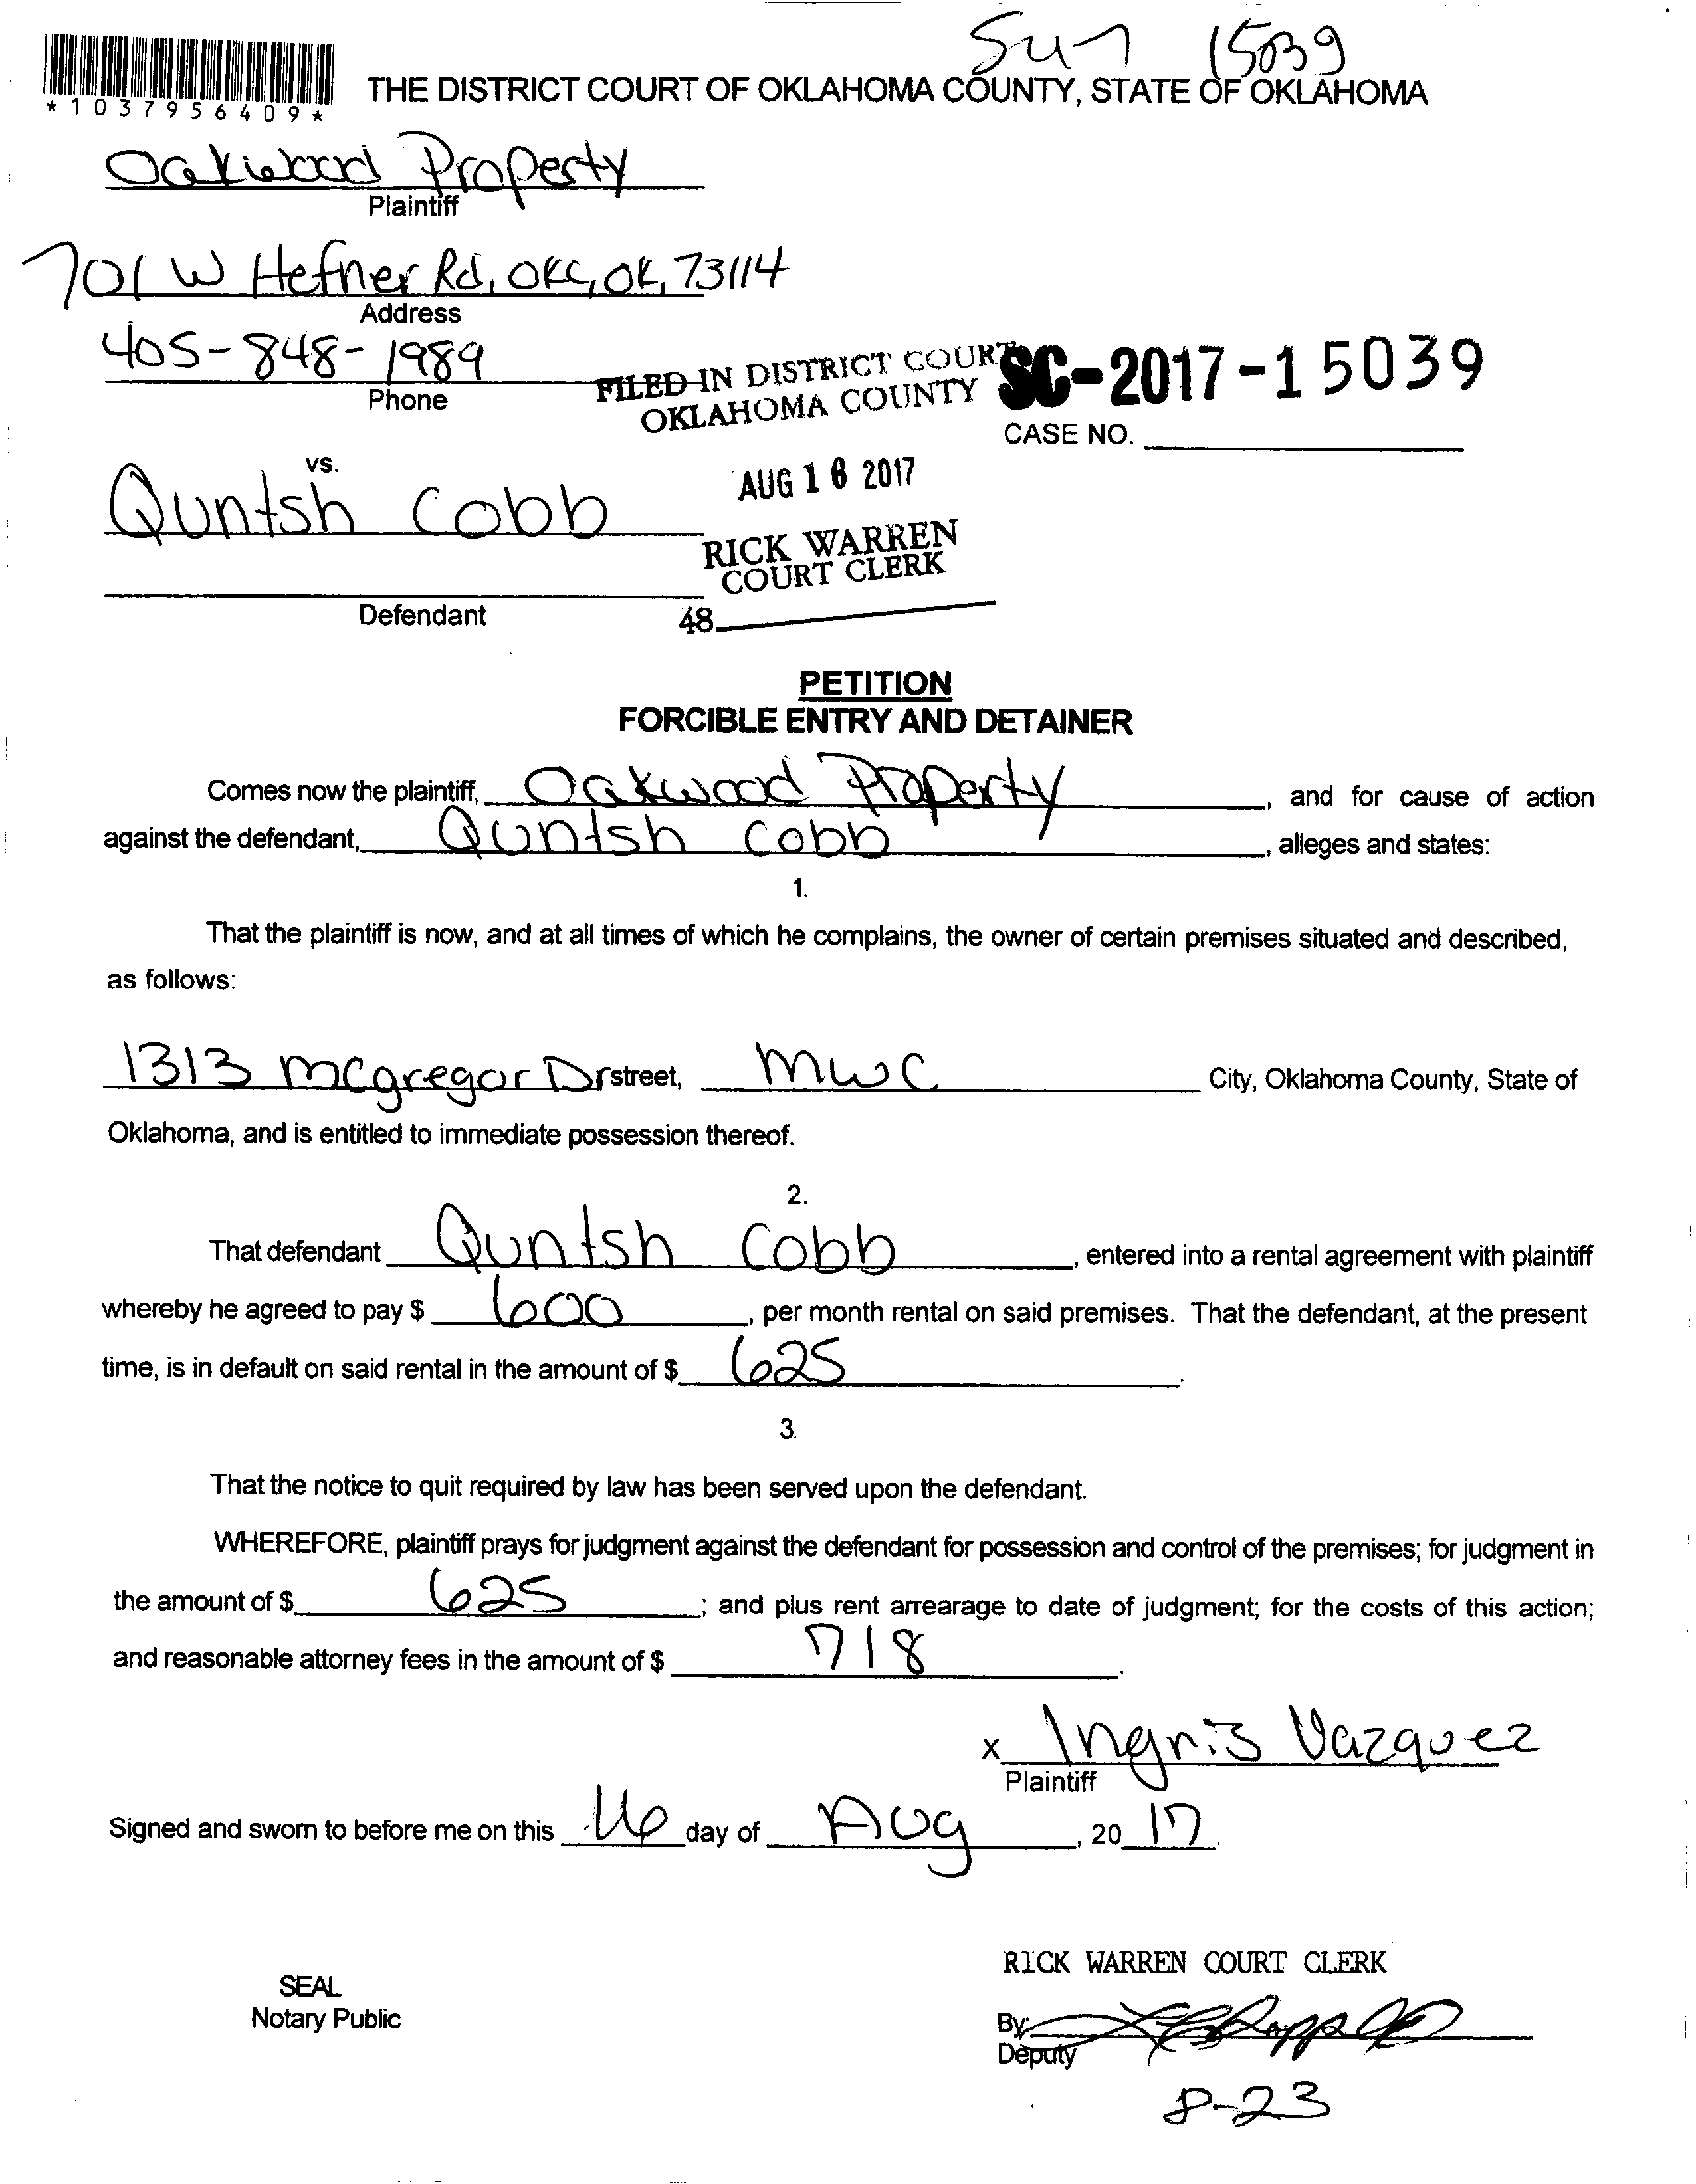 15039
*1037956409*
THE DISTRICT COURT OF OKLAHOMA COUNTY, STATE OF OKLAHOMA
Oakwood Property
Plaintiff
701 W Hefner Rd, OKC, OK, 73114
Address
405-848-1989
Phone
FILED IN DISTRICT COURT
OKLAHOMA COUNTY
SC-2017-15039
CASE NO.
vs.
Quntsh Cobb
AUG 16 2017
RICK WARREN
COURT CLERK
Defendant
48
PETITION
FORCIBLE ENTRY AND DETAINER
Comes now the plaintiff, Oakwood Property, and for cause of action
against the defendant, Quntsh Cobb, alleges and states:
1.
That the plaintiff is now, and at all times of which he complains, the owner of certain premises situated and described,
as follows:
1313 Mcgregor Dr street, MWC City, Oklahoma County, State of
Oklahoma, and is entitled to immediate possession thereof.
2.
That defendant Quntsh Cobb, entered into a rental agreement with plaintiff
whereby he agreed to pay $ 600, per month rental on said premises. That the defendant, at the present
time, is in default on said rental in the amount of $ 625.
3.
That the notice to quit required by law has been served upon the defendant.
WHEREFORE, plaintiff prays for judgment against the defendant for possession and control of the premises; for judgment in
the amount of $ 625; and plus rent arrearage to date of judgment; for the costs of this action;
and reasonable attorney fees in the amount of $ 718.
x Ingris Vazquez
Plaintiff
Signed and sworn to before me on this 16 day of Aug, 20 17.
RICK WARREN COURT CLERK
SEAL
Notary Public
By:
Deputy
8-23